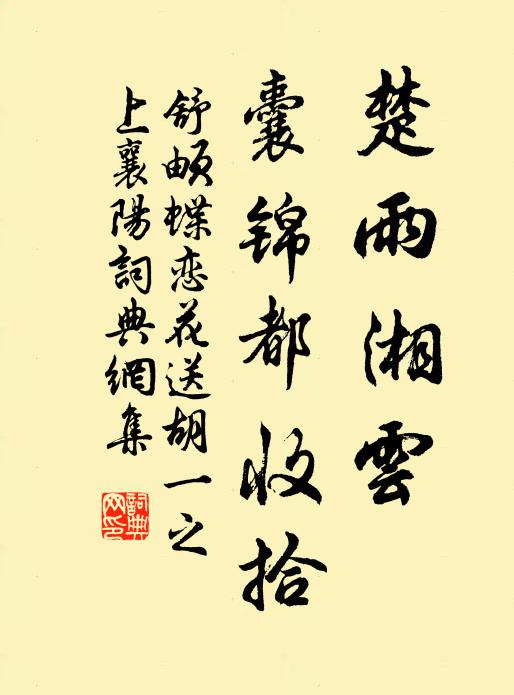 楚雨湘雲
囊錦都收拾
舒頔蝶恋花送胡一之
上襄陽詞典網集
詞典網印